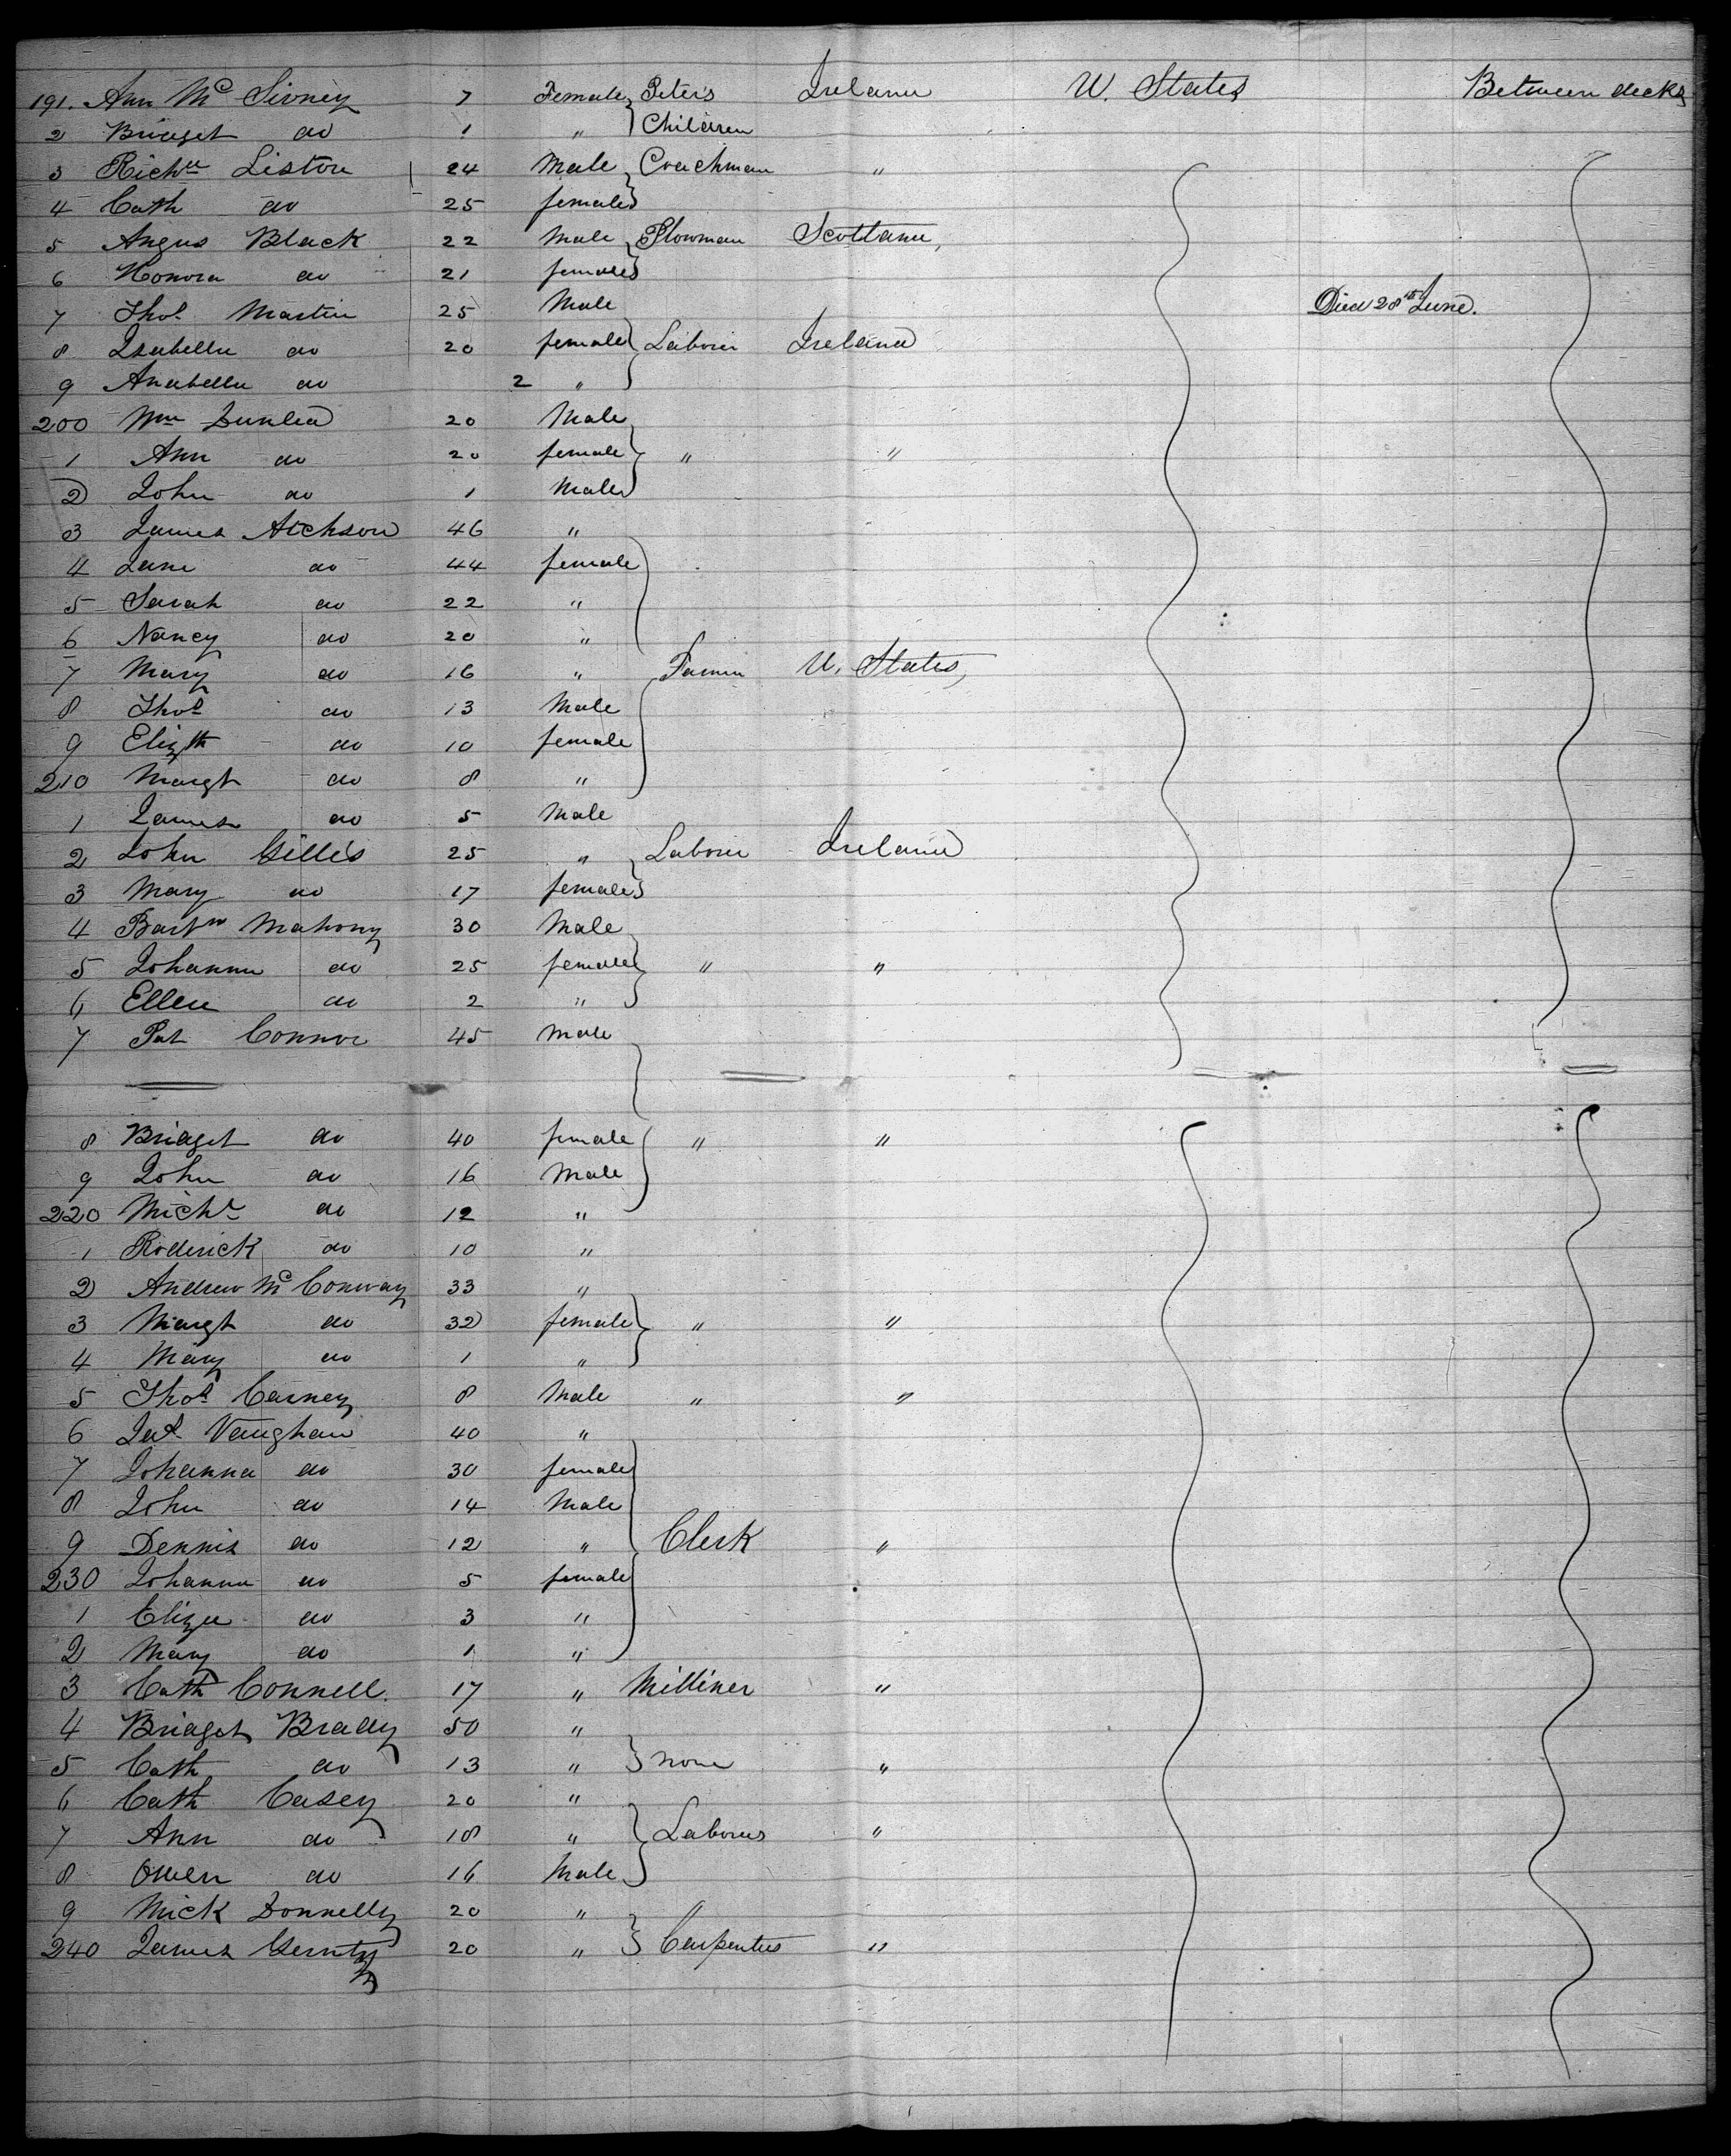 191. Ann Mc Sivney 7 Female Peter's Ireland U. States Between decks
2 Bridget do 1 " Children
3 Richd Liston 24 Male Coachman "
4 Cath do 25 female
5 Angus Black 22 Male Plowman Scotland
6 Honora do 21 female
7 Thos Martin 25 Male Died 28th June.
8 Isabella do 20 female Laborer Ireland
9 Anabella do 2 "
200 Wm Dunlea 20 Male
1 Ann do 20 female " "
2 John do 1 Male
3 James Atchson 46 "
4 Jane do 44 female
5 Sarah do 22 "
6 Nancy do 20 "
7 Mary do 16 " Farmer U. States
8 Thos do 13 Male
9 Elizth do 10 female
210 Margt do 8 "
1 James do 5 Male
2 John Gillis 25 " Laborer Ireland
3 Mary do 17 female
4 Bartw Mahony 30 Male
5 Johanna do 25 female " "
6 Ellen do 2 "
7 Pat Connor 45 Male
8 Bridget do 40 female " "
9 John do 16 Male
220 Michl do 12 "
1 Roderick do 10 "
2 Andrew Mc Conway 33 "
3 Margt do 32 female " "
4 Mary do 1 "
5 Thos Carney 8 Male " "
6 Jas Vaughan 40 "
7 Johanna do 30 female
8 John do 14 Male
9 Dennis do 12 " Clerk "
230 Johanna do 5 female
1 Eliza do 3 "
2 Mary do 1 "
3 Cath Connell. 17 " Milliner "
4 Bridget Brady 50 "
5 Cath do 13 " none "
6 Cath Casey 20 "
7 Ann do 18 " Laborers "
8 Owen do 16 Male
9 Mick Donnelly 20 "
240 James 20 " Carpenters "